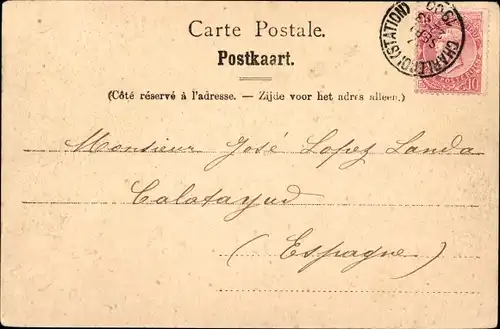 Carte Postale.
Postkaart.
(Côté réservé à l'adresse. — Zijde voor het adres alleen.)
CHARLEROI (STATION)
10
Monsieur José Lopez Landa
Calatayud
(Espagne)